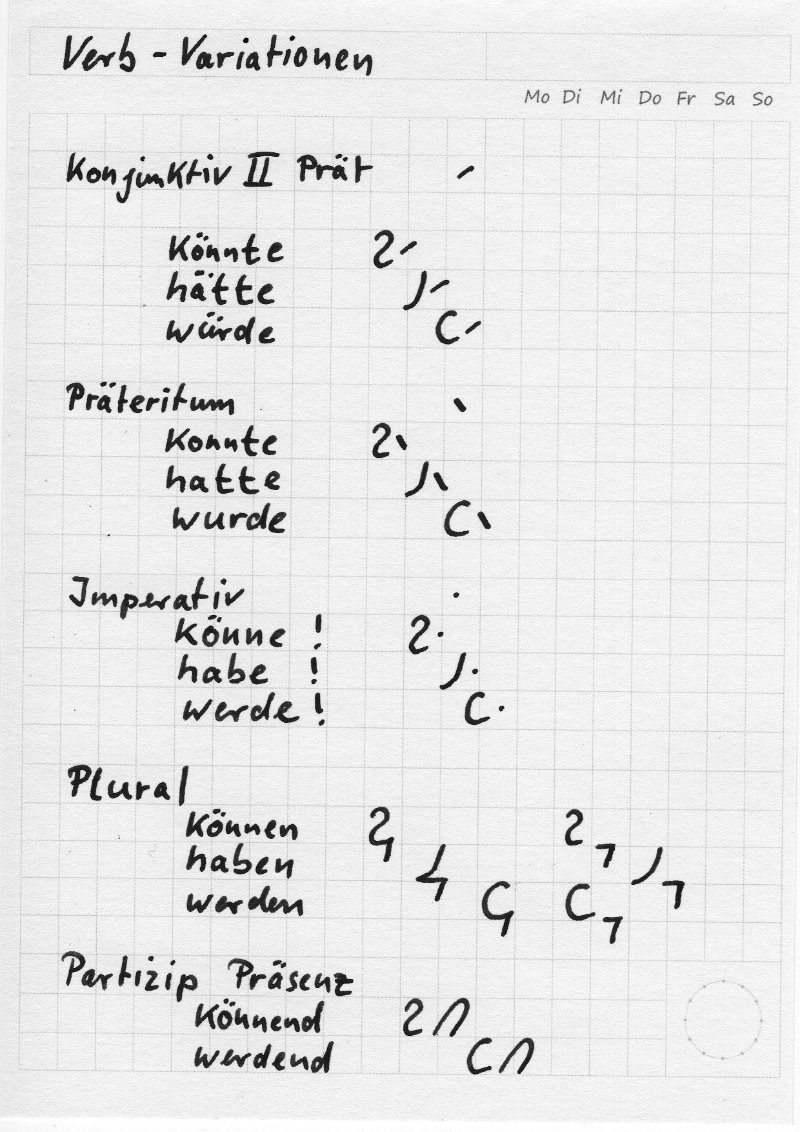 Verb - Variationen
Mo Di Mi Do Fr Sa So
Konjunktiv II Prät
könnte
hätte
würde
Präteritum
konnte
hatte
wurde
Imperativ
könne !
habe !
werde !
Plural
können
haben
werden
Partizip Präsenz
könnend
werdend